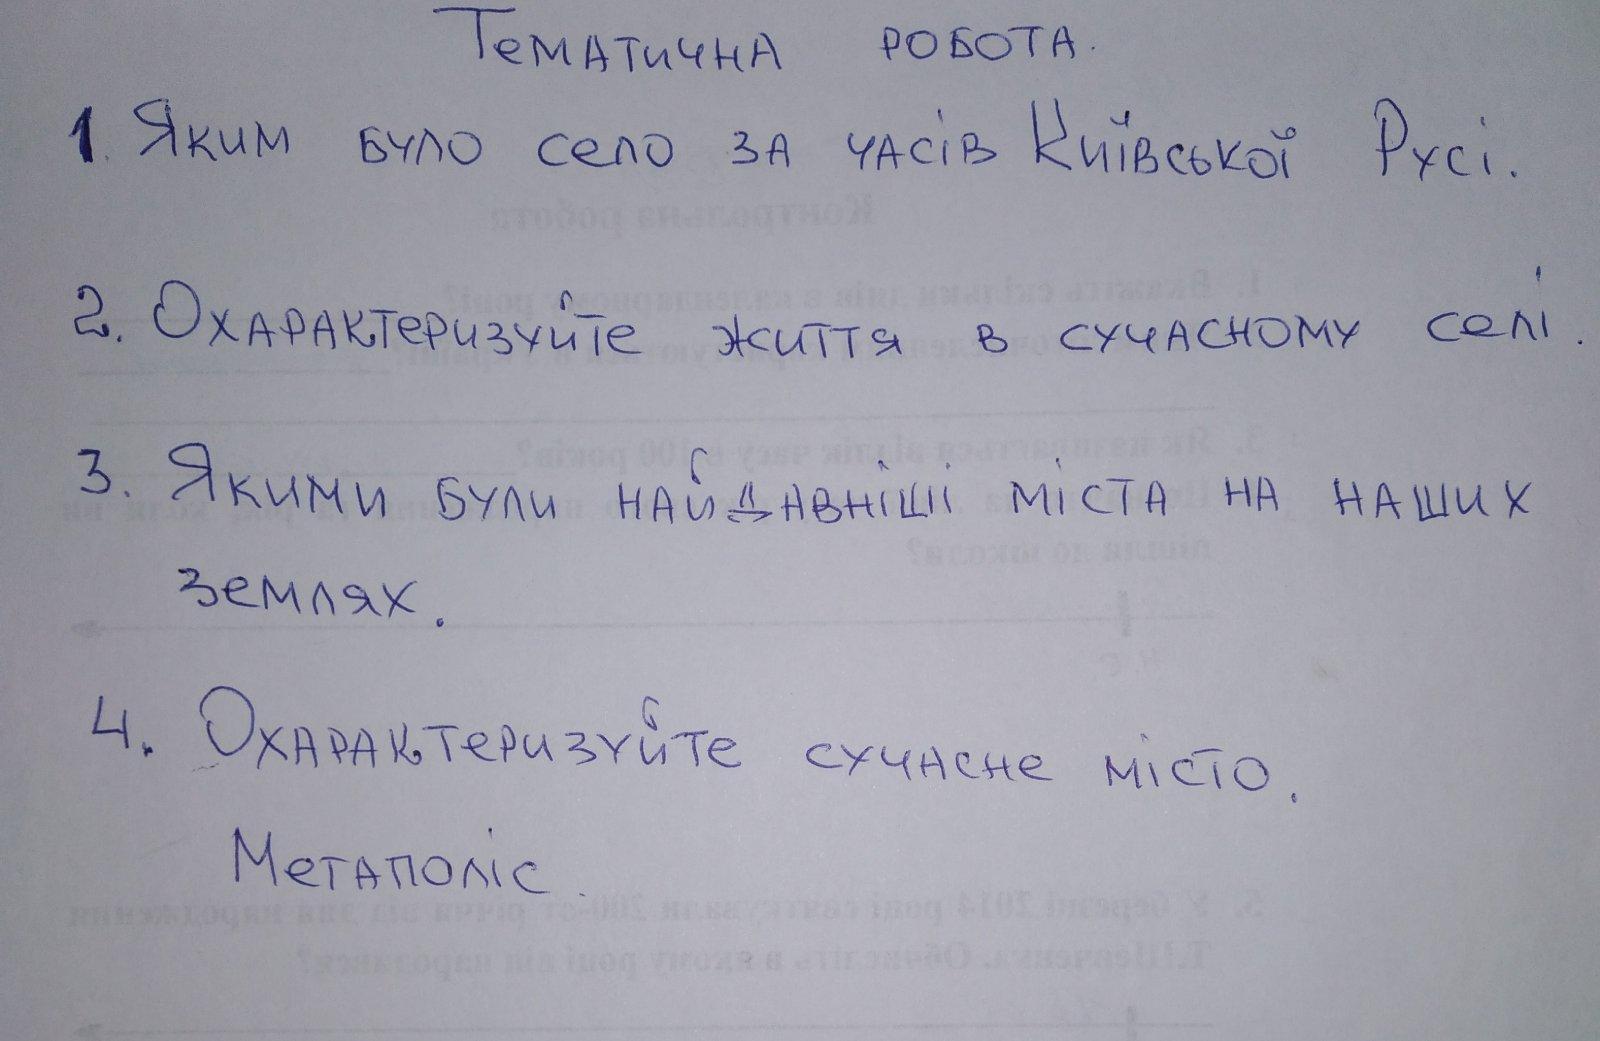 Тематична робота.
1. Яким було село за часів Київської Русі.
2. Охарактеризуйте життя в сучасному селі.
3. Якими були найдавніші міста на наших
землях.
4. Охарактеризуйте сучасне місто.
Метаполіс.